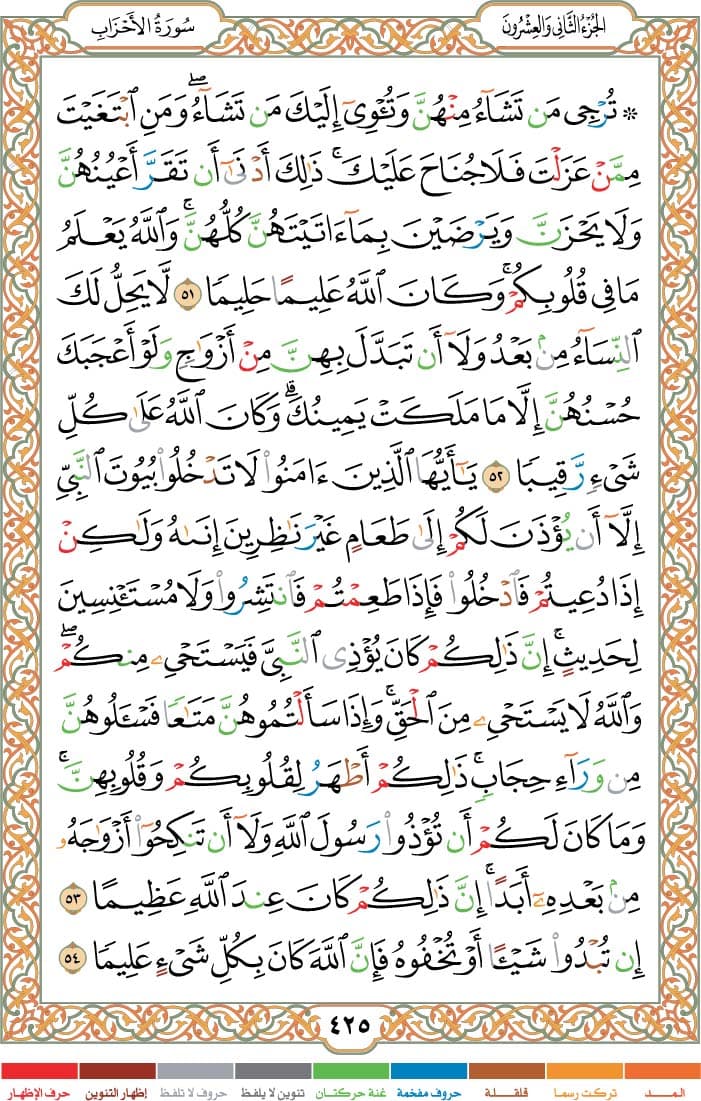 الجزء الثاني والعشرون
سورة الأحزاب
۞ تُرْجِى مَن تَشَآءُ مِنْهُنَّ وَتُـْٔوِىٓ إِلَيْكَ مَن تَشَآءُ ۖ وَمَنِ ٱبْتَغَيْتَ
مِمَّنْ عَزَلْتَ فَلَا جُنَاحَ عَلَيْكَ ۚ ذَٰلِكَ أَدْنَىٰٓ أَن تَقَرَّ أَعْيُنُهُنَّ
وَلَا يَحْزَنَّ وَيَرْضَيْنَ بِمَآ ءَاتَيْتَهُنَّ كُلُّهُنَّ ۚ وَٱللَّهُ يَعْلَمُ
مَا فِى قُلُوبِكُمْ ۚ وَكَانَ ٱللَّهُ عَلِيمًا حَلِيمًا ٥١ لَّا يَحِلُّ لَكَ
ٱلنِّسَآءُ مِنۢ بَعْدُ وَلَآ أَن تَبَدَّلَ بِهِنَّ مِنْ أَزْوَٰجٍ وَلَوْ أَعْجَبَكَ
حُسْنُهُنَّ إِلَّا مَا مَلَكَتْ يَمِينُكَ ۗ وَكَانَ ٱللَّهُ عَلَىٰ كُلِّ
شَىْءٍ رَّقِيبًا ٥٢ يَـٰٓأَيُّهَا ٱلَّذِينَ ءَامَنُوا۟ لَا تَدْخُلُوا۟ بُيُوتَ ٱلنَّبِىِّ
إِلَّآ أَن يُؤْذَنَ لَكُمْ إِلَىٰ طَعَامٍ غَيْرَ نَـٰظِرِينَ إِنَىٰهُ وَلَـٰكِنْ
إِذَا دُعِيتُمْ فَٱدْخُلُوا۟ فَإِذَا طَعِمْتُمْ فَٱنتَشِرُوا۟ وَلَا مُسْتَـْٔنِسِينَ
لِحَدِيثٍ ۚ إِنَّ ذَٰلِكُمْ كَانَ يُؤْذِى ٱلنَّبِىَّ فَيَسْتَحْىِۦ مِنكُمْ ۖ
وَٱللَّهُ لَا يَسْتَحْىِۦ مِنَ ٱلْحَقِّ ۚ وَإِذَا سَأَلْتُمُوهُنَّ مَتَـٰعًا فَسْـَٔلُوهُنَّ
مِن وَرَآءِ حِجَابٍ ۚ ذَٰلِكُمْ أَطْهَرُ لِقُلُوبِكُمْ وَقُلُوبِهِنَّ ۚ
وَمَا كَانَ لَكُمْ أَن تُؤْذُوا۟ رَسُولَ ٱللَّهِ وَلَآ أَن تَنكِحُوٓا۟ أَزْوَٰجَهُۥ
مِنۢ بَعْدِهِۦٓ أَبَدًا ۚ إِنَّ ذَٰلِكُمْ كَانَ عِندَ ٱللَّهِ عَظِيمًا ٥٣
إِن تُبْدُوا۟ شَيْـًٔا أَوْ تُخْفُوهُ فَإِنَّ ٱللَّهَ كَانَ بِكُلِّ شَىْءٍ عَلِيمًا ٥٤
٤٢٥
المـــد
تركت رسما
قلقـلة
حروف مفخمة
غنة حركتان
تنوين لا يلفظ
حروف لا تلفظ
إظهار التنوين
حرف الإظهار